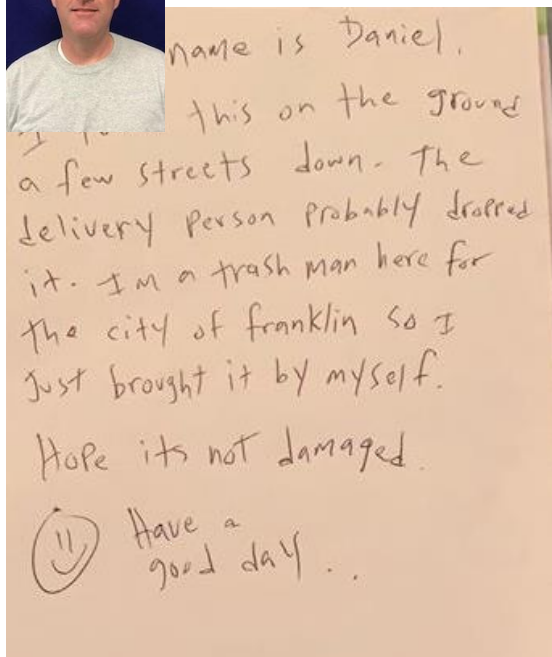 name is Daniel.
this on the ground
a few streets down. The
delivery person probably dropped
it. Im a trash man here for
the city of franklin so I
Just brought it by myself.
Hope its not damaged.
Have a
good day..